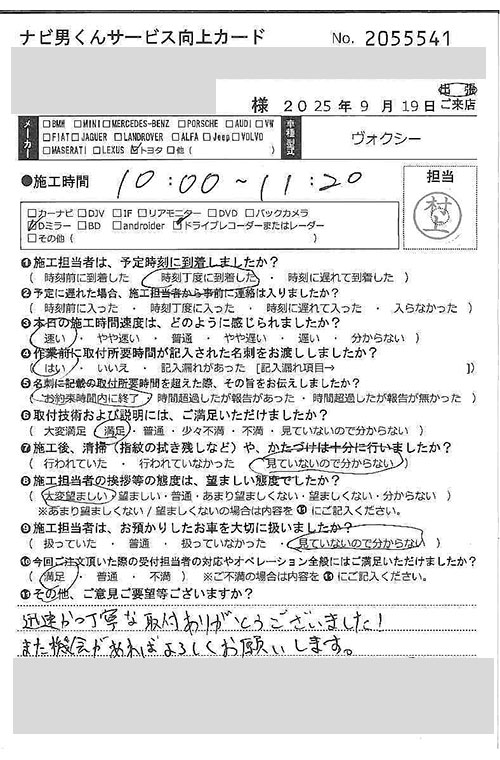 ナビ男くんサービス向上カード No. 2055541
様 2025年9月19日 出張 ご来店
メーカー □BMW □MINI □MERCEDES-BENZ □PORSCHE □AUDI □VW
□FIAT □JAGUER □LANDROVER □ALFA □Jeep □VOLVO
□MASERATI □LEXUS ☑トヨタ □他 ( )
車種型式 ヴォクシー
●施工時間 10:00~11:20
担当
村上
□カーナビ □DJV □IF □リアモニター □DVD □バックカメラ
☑Dミラー □BD □androider ☑ドライブレコーダーまたはレーダー
□その他 ( )
❶施工担当者は、予定時刻に到着しましたか?
( 時刻前に到着した ・ 時刻丁度に到着した ・ 時刻に遅れて到着した )
❷予定に遅れた場合、施工担当者から事前に連絡は入りましたか?
( 時刻前に入った ・ 時刻丁度に入った ・ 時刻に遅れて入った ・ 入らなかった )
❸本日の施工時間速度は、どのように感じられましたか?
( 速い ・ やや速い ・ 普通 ・ やや遅い ・ 遅い ・ 分からない )
❹作業前に取付所要時間が記入された名刺をお渡ししましたか?
( はい ・ いいえ ・ 記入漏れがあった [記入漏れ項目→ ])
❺名刺に記載の取付所要時間を超えた際、その旨をお伝えしましたか?
( お約束時間内に終了 ・ 時間超過したが報告があった ・ 時間超過したが報告が無かった )
❻取付技術および説明には、ご満足いただけましたか?
( 大変満足 ・ 満足 ・ 普通 ・ 少々不満 ・ 不満 ・ 見ていないので分からない )
❼施工後、清掃（指紋の拭き残しなど）や、かたづけは十分に行いましたか?
( 行われていた ・ 行われていなかった ・ 見ていないので分からない )
❽施工担当者の挨拶等の態度は、望ましい態度でしたか?
( 大変望ましい ・ 望ましい ・ 普通 ・ あまり望ましくない ・ 望ましくない ・ 分からない )
※あまり望ましくない / 望ましくないの場合は内容を⓫にご記入ください。
❾施工担当者は、お預かりしたお車を大切に扱いましたか?
( 扱っていた ・ 普通 ・ 扱っていなかった ・ 見ていないので分からない )
❿今回ご注文頂いた際の受付担当者の対応やオペレーション全般にはご満足いただけましたか?
( 満足 ・ 普通 ・ 不満 ) ※ご不満の場合は内容を⓫にご記入ください。
⓫その他、ご意見ご要望等ございますか?
迅速かつ丁寧な取付ありがとうございました!
また機会があればよろしくお願いします。